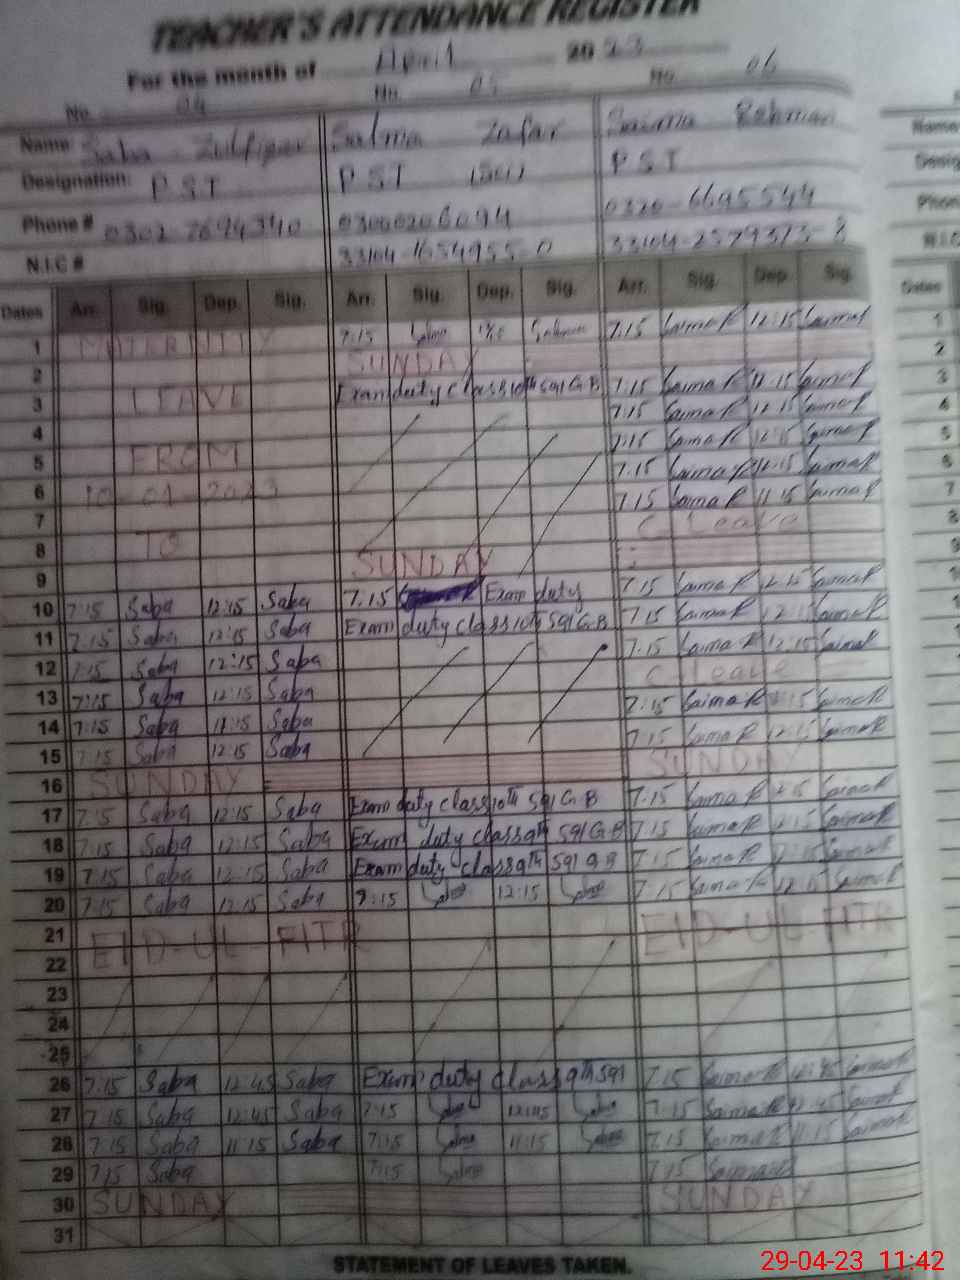 TEACHER'S ATTENDANCE REGISTER
For the month of April 2023
No. 04 No. 05 No. 06
Name: Saba Zulfiqar Salma Zafar Saima Rehman
Designation: P S T P S T P S T
Phone # 0302-7694340 03000206094 0320-6695544
N.I.C # 33104-1654955-0 33104-2579373-8
Dates Arr. Sig. Dep. Sig. Arr. Sig. Dep. Sig. Arr. Sig. Dep. Sig.
1 MATERNITY 7:15 Salma 12:15 7:15 Saima R 12:15 Saima R
2 SUNDAY
3 LEAVE Exam duty Class 10th 591 G.B 7:15 Saima R 11:15 Saima R
4 7:15 Saima R 12:15 Saima R
5 FROM 7:15 Saima R 12:15 Saima R
6 10-01-2023 7:15 Saima R 12:15 Saima R
7 7:15 Saima R 11:15 Saima R
8 TO C. Leave
9 SUNDAY
10 7:15 Saba 12:15 Saba 7:15 Exam duty 7:15 Saima R 12:15 Saima R
11 7:15 Saba 12:15 Saba Exam duty class 10th 591 G.B 7:15 Saima R 12:15 Saima R
12 7:15 Saba 12:15 Saba 7:15 Saima R 12:15 Saima R
13 7:15 Saba 12:15 Saba C. Leave
14 7:15 Saba 11:15 Saba 7:15 Saima R Saima R
15 7:15 Saba 12:15 Saba 7:15 Saima R 12:15 Saima R
16 SUNDAY SUNDAY
17 7:15 Saba 12:15 Saba Exam duty class 10th 591 G.B 7:15 Saima R Saima R
18 7:15 Saba 12:15 Saba Exam duty class 9th 591 G.B 7:15 Saima R 12:15 Saima R
19 7:15 Saba 12:15 Saba Exam duty class 9th 591 G.B 7:15 Saima R 12:15 Saima R
20 7:15 Saba 12:15 Saba 7:15 Salma 12:15 Salma 7:15 Saima R 12:15 Saima R
21 EID-UL FITR EID-UL-FITR
22
23
24
25
26 7:15 Saba 12:45 Saba Exam duty class 9th 591 7:15 Saima R 12:45 Saima R
27 7:15 Saba 12:45 Saba 7:15 Salma 12:45 Salma 7:15 Saima R 12:45 Saima R
28 7:15 Saba 11:15 Saba 7:15 Salma 11:15 Salma 7:15 Saima R 11:15 Saima R
29 7:15 Saba 7:15 Salma 7:15 Saima R
30 SUNDAY SUNDAY
31
STATEMENT OF LEAVES TAKEN.
29-04-23 11:42